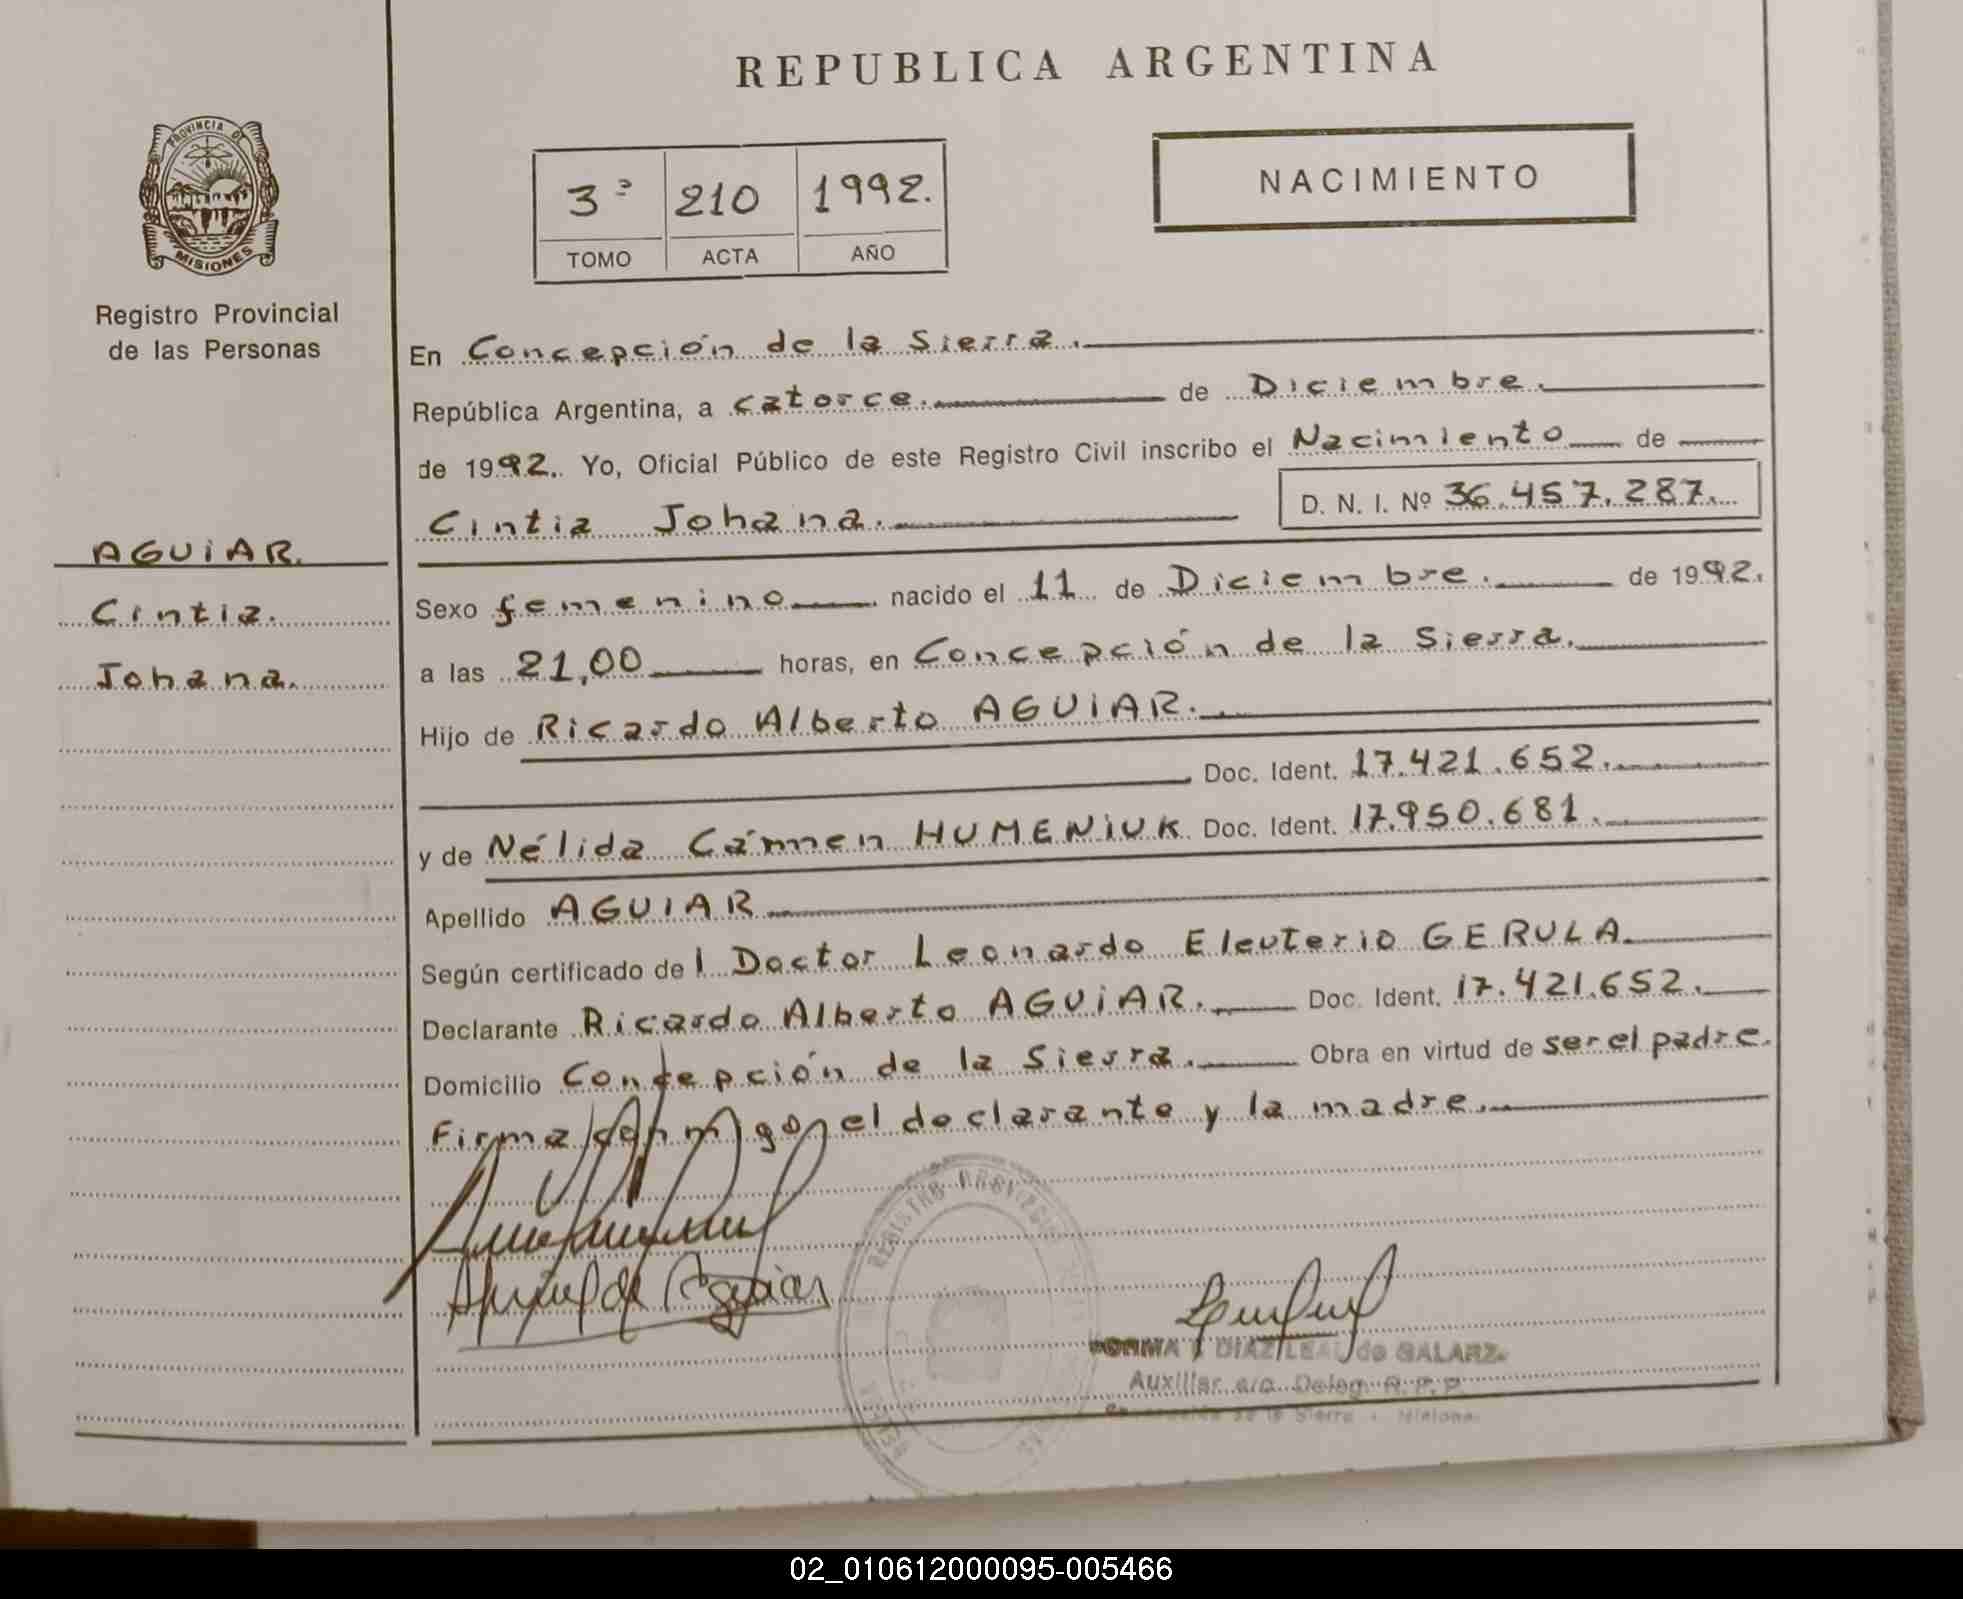 REPUBLICA ARGENTINA
PROVINCIA DE
MISIONES
Registro Provincial
de las Personas
3ª 210 1992.
TOMO ACTA AÑO
NACIMIENTO
AGUIAR.
Cintia.
Johana.
En Concepción de la Sierra.
República Argentina, a catorce. de Diciembre.
de 1992. Yo, Oficial Público de este Registro Civil inscribo el Nacimiento de
Cintia Johana. D. N. I. Nº 36.457.287.
Sexo femenino nacido el 11 de Diciembre. de 1992.
a las 21,00 horas, en Concepción de la Sierra.
Hijo de Ricardo Alberto AGUIAR.
Doc. Ident. 17.421.652.
y de Nélida Cármen HUMENIUK Doc. Ident. 17.950.681.
Apellido AGUIAR
Según certificado de l Doctor Leonardo Eleuterio GERULA.
Declarante Ricardo Alberto AGUIAR. Doc. Ident. 17.421.652.
Domicilio Concepción de la Sierra. Obra en virtud de ser el padre.
Firma conmigo el declarante y la madre.
REGISTRO PROVINCIAL
de Aguiar
NORMA DIAZ LEAL de GALARZA
Auxiliar a/c Deleg. R. P. P.
de la Sierra - Misiones
02_010612000095-005466